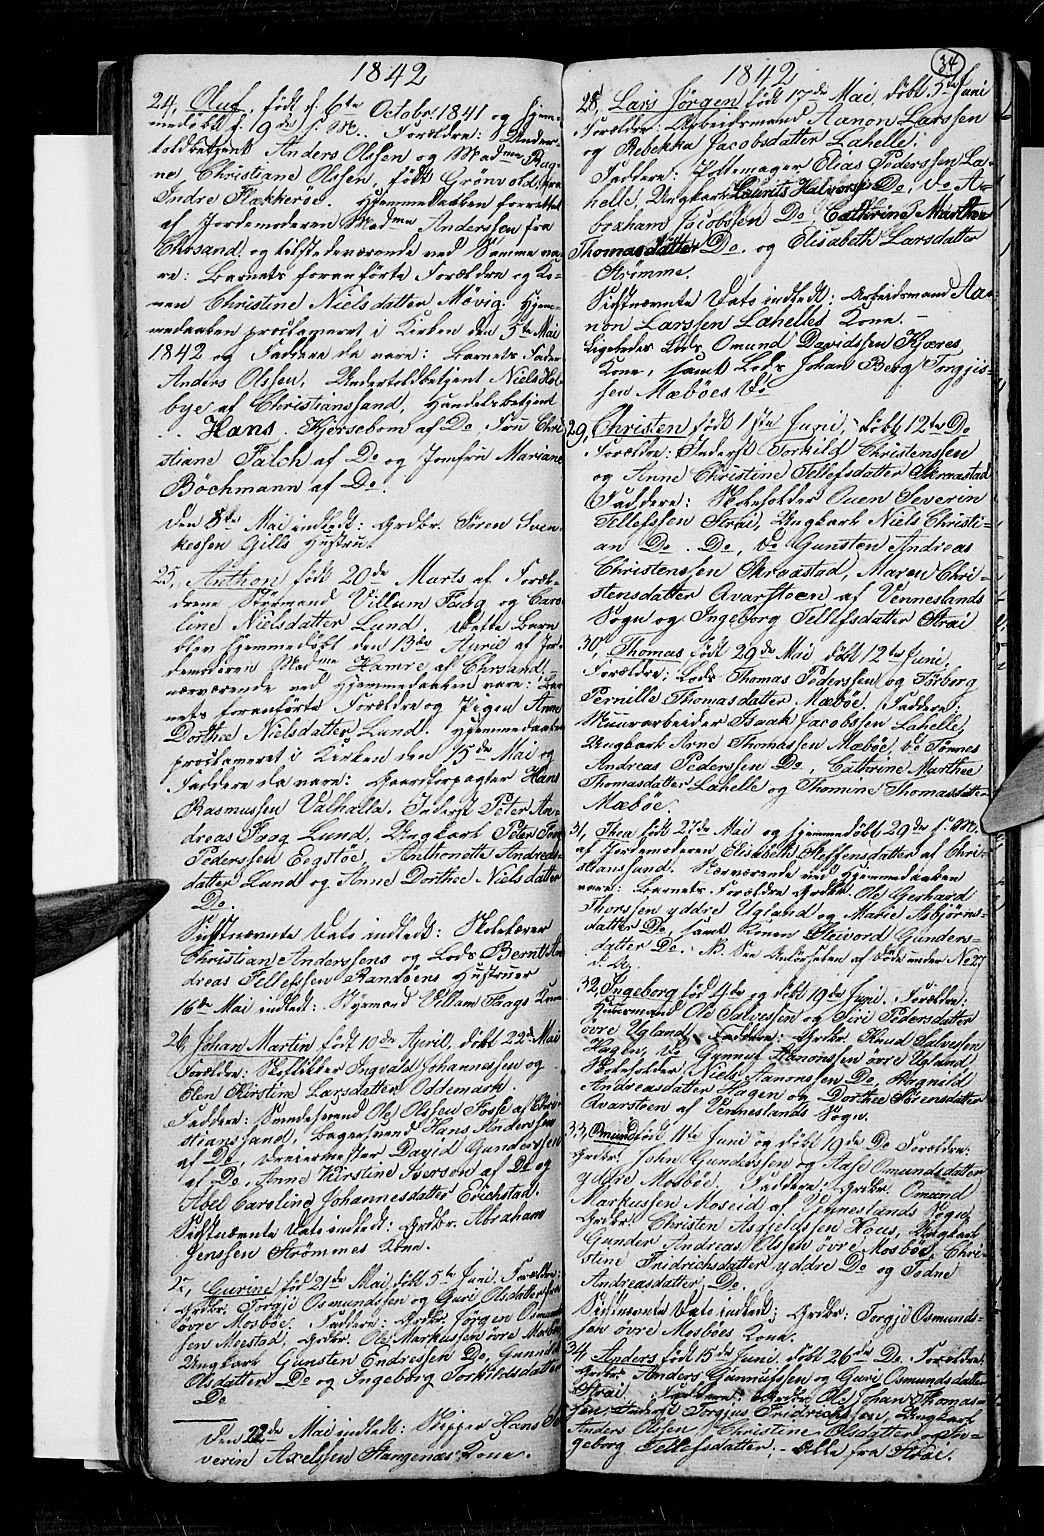 1842
24, Oluf, födt d. 6te Octobr. 1841 og hjem-
medöbt d. 19de s. M. Forældre: Under-
toldbetjent Anders Olssen og Madme Rag-
ne, Christiane Olssen, födt Grönvold, fra
Indre Flækkeröe. Hjemmedaaben forrettet
af Jordemoderen Madme Anderssen fra
Chrsand, og tilstedeværende ved Samme va-
re: Barnets foranförte Forældre og Ko-
nen Christine Nielsdatter Mövig. Hjem-
medaaben proclameret i Kirken den 5te Mai
1842 og Faddere da vare: Barnets Fader
Anders Olssen, Undertoldbetjent Niels Hol-
bye af Christianssand, Handelsbetjent
Hans Kjersebom af Do, Chri-
stiane Falch af Do og Jomfru Mariane
Böchmann af Do.
Den 8de Mai indledt: Grdbr. Sören Sven-
kessen Gills Hustru.
25, Anthon födt 20de Marts af Foræl-
drene Styrmand Villum Faag og Caro-
line Nielsdatter Lund. Dette Barn
blev hjemmedöbt den 13de April af Jor-
demoderen Madme Hamre af Chrsand,
nærværende ved Hjemmedaaben vare: Bar-
nets foranförte Forældre og Pigen Anne
Dorthee Nielsdatter Lund. Hjemmedaaben
proclameret i Kirken den 15de Mai og
Faddere da vare: Gaardforpagter Hans
Rasmussen Valhalla, Inderst Peter An-
dreas Faag Lund, Ungkarl Peter
Pederssen Eegstöe, Anthonette Andreas-
datter Lund og Anne Dorthee Nielsdatter
Do.
Sidstnævnte Dato indledt: Skoleholder
Christian Anderssens og Lods Bernt An-
dreas Tellefssen Randöens Hustruer
16de Mai indledt: Styrmand Villum Faags Kone
26, Johan Martin födt 10de April, döbt 22de Mai
Forældre: Skoflikker Ingvald Johannessen og
Elen Kirstine Larsdatter Oddemark.
Faddere: Svendesvend Ole Olssen Forse af Chri-
stianssand, Bagersvend Hans Anderssen
af Do, Veiermester David Gunderssen
af Do, Anne Kirstine Iversen af Do og
Abel Caroline Johannesdatter Erichstad.
Sidstnævnte Dato indledt: Grdbr. Abraham
Jenssen Strömmes Kone.
27, Gurine, föd 21de Mai, döbt 5te Juni. Forældre:
Grdbr. Torgje Osmundssen og Guri Olsdatter
övre Mosböe. Faddere: Grdbr. Jörgen Osmund-
sen Meestad, Grdbr. Ole Markussen övre Mosböe
Ungkarl Gunsten Endressen Do, Gunnild
Olsdatter Do og Ingeborg Torkildsdatter
Do
Den 22de Mai indledt: Skipper Hans
verin Axelssen Stangenæs Kone.
34
1842
28, Lars Jörgen födt 17de Mai, döbt 5te Juni
Forældre: Arbeidsmand Aanon Larssen
og Rebekka Jacobsdatter Lahelle.
Faddere: Pottemager Elias Pederssen La-
helle, Ungkarl Laurits Halvorsen Do, do A-
braham Jacobssen Do, Cathrine Marthee
Thomasdatter Do. og Elisabeth Larsdatter
Strimme.
Sidstnævnte Dato indledt: Arbeidsmand Aa-
non Larssen Lahelles Kone. —
Ligeledes Lods Omund Davidssen Kjæres
Kone, samt Lods Johan Berg Torgjus-
sen Mæböes do
29, Christen födt 1ste Juni, döbt 12te Do
Forældre: Inderst Torkild Christenssen
og Anne Christine Tellefsdatter Skraastad
Faddere: Skoleholder Ouen Severin
Tellefssen Strai, Ungkarl Niels Christi-
an Do. Do, do Gunsten Andreas
Christenssen Skraastad, Maren Chri-
stensdatter Qvarstoen af Venneslands
Sogn og Ingeborg Tellefsdatter Strai
30, Thomas födt 29de Mai döbt 12te Juni,
Forældre: Lods Thomas Pederssen og Törborg
Pernille Thomasdatter Mæböe. Faddere:
Muurarbeider Isaak Jacobssen Lahelle,
Ungkarl Arne Thomassen Mæböe, do Tönnes
Andreas Pederssen Do, Cathrine Marthee
Thomasdatter Lahelle og Thomine Thomasdatter
Mæböe.
31, Thea födt 27de Mai og hjemmedöbt 29de s. M.
af Jordemoderen Elisabeth Steffensdatter af Chri-
stianssand. Nærværende ved Hjemmedaaben
vare: Barnets Forældre Grdbr. Ole Gerhard
Thorssen yddre Ugland og Marie Asbjörns-
datter Do, samt Konen Steivord Gunders-
datter Do. NB. See Anförselen af Döde under No 27
d. A.
32, Ingeborg föd 4de og döbt 19de Juni. Forældre:
Huusmand Ole Salvessen og Siri Pedersdatter
övre Ugland. Faddere: Grdbr. Knud Salvesen
Hagen, do Gunnuf Aanonssen övre Ugland,
Skoleholder Niels Aanonssen Do, Ragnild
Andreasdatter Hagen og Dorthee Sörensdatter
Qvarstoen af Venneslands Sogn.
33, Omund födt 11te Juni og döbt 19de Do Forældre:
Grdbr. John Gunderssen og Aase Omundsdatter
yddre Mosböe. Faddere: Grdbr. Omund
Markussen Moseid af Venneslands Sogn,
Grdbr. Christen Asgjeldssen Hous, Ungkarl
Gunder Andreas Olssen övre Mosböe, Chri-
stine Fridrichsdatter yddre Do og Todne
Andreasdatter Do.
Sidstnævnte Dato indledt: Grdbr. Torgje Osmunds-
sen övre Mosböes Kone.
34, Anders födt 15de Juni, döbt 26de Do. Forældre:
Grdbr. Anders Gunnufssen og Guri Osmundsdatter
Strai. Faddere: Grdbr. Ole Johan Thomas-
sen, Inderst Torgjus Fridrichssen, Ungkarl
Anders Olssen, Christine Olsdatter og In-
geborg Tellefsdatter, — Alle fra Strai.